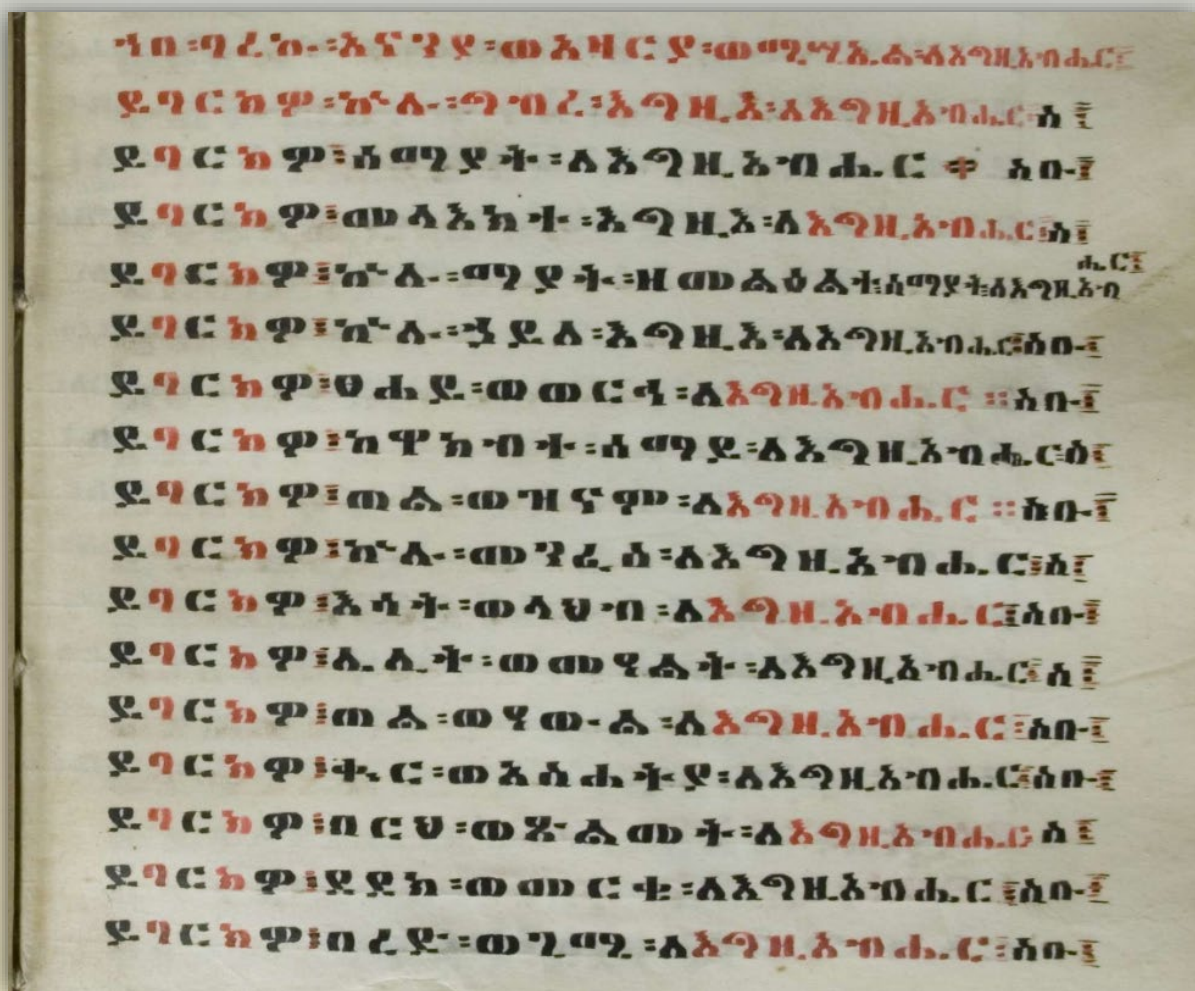 ኀበ፡ባረኩ፡አናንያ፡ወአዛርያ፡ወሚሣኤል፡ለእግዚአብሔር፤
ይባርክዎ፡ኵሉ፡ግብረ፡እግዚእ፡ለእግዚአብሔር፡ስ፤
ይባርክዎ፤ሰማያት፡ለእግዚአብሔር ። ስቡ፤
ይባርክዎ፤መላእክት፡እግዚእ፡ለእግዚአብሔር፤ስ፤
ሔር፤
ይባርክዎ፤ኵሉ፡ማያት፡ዘመልዕልት፡ሰማያት፡ለእግዚአብ
ይባርክዎ፤ኵሉ፡ኃይለ፡እግዚእ፡ለእግዚአብሔር፤ስቡ፤
ይባርክዎ፤ፀሐይ፡ወወርኅ፡ለእግዚአብሔር ።ስቡ፤
ይባርክዎ፤ከዋክብት፡ሰማይ፡ለእግዚአብሔር፡ስ፤
ይባርክዎ፤ጠል፡ወዝናም፡ለእግዚአብሔር ።ስቡ፤
ይባርክዎ፤ኵሉ፡መንፈስ፡ለእግዚአብሔር፤ስ፤
ይባርክዎ፤እሳት፡ወላህብ፡ለእግዚአብሔር፤ስቡ፤
ይባርክዎ፤ሌሊት፡ወመዓልት፡ለእግዚአብሔር፤ስ፤
ይባርክዎ፤ጠል፡ወዓውል፡ለእግዚአብሔር፤ስቡ፤
ይባርክዎ፤ቍር፡ወአስሐትያ፡ለእግዚአብሔር፤ስቡ፤
ይባርክዎ፤በርህ፡ወጽልመት፡ለእግዚአብሔር ስ፤
ይባርክዎ፤ደደክ፡ወመርቄ፡ለእግዚአብሔር፤ስቡ፤
ይባርክዎ፤በረድ፡ወጊሜ፡ለእግዚአብሔር፤ስቡ፤